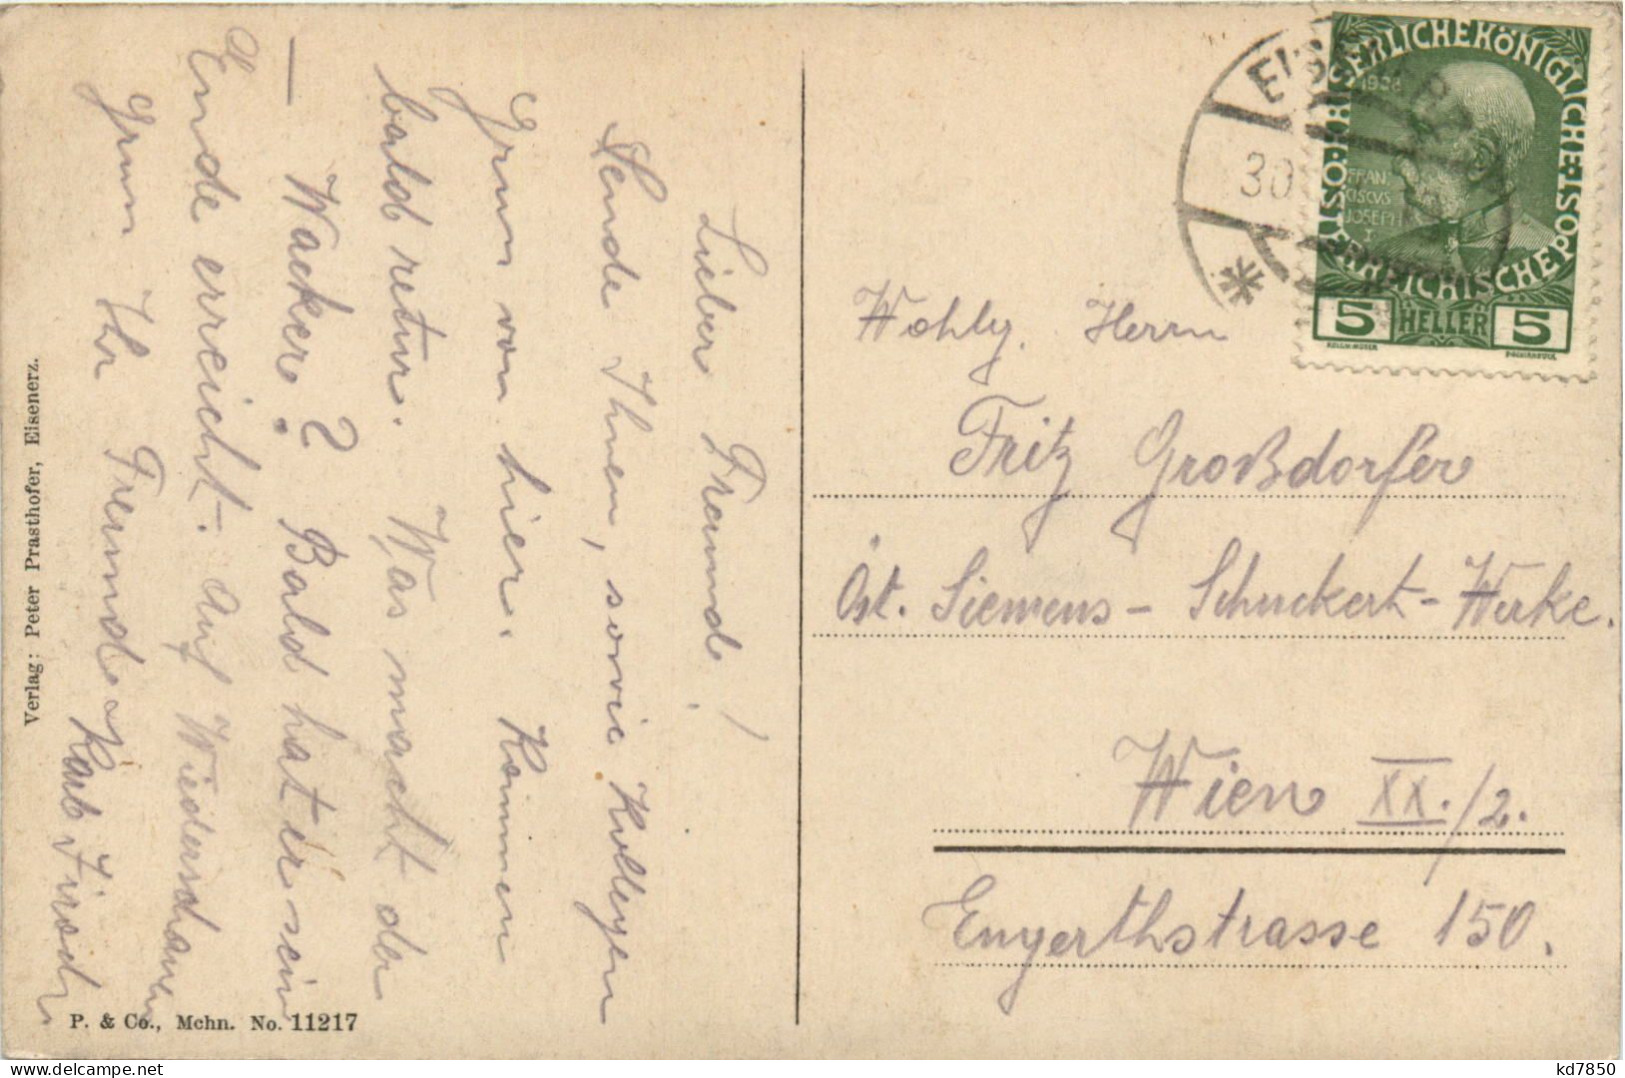 Lieber Freund!
Sende Ihnen, sowie Kollegen
Gruss von hier. Kommen
bald retur. Was macht der
— Wacker? Bald hat er sein
Ende erreicht. Auf Wiederschauen
Gruss Ihr Freund
Karl
Verlag: Peter Prasthofer, Eisenerz.
P. & Co., Mchn. No. 11217
EISENERZ
30
KAISERLICHE KÖNIGLICHE ÖSTERREICHISCHE POST
1908
FRAN
CISCVS
JOSEPH
I
5 HELLER 5
Wohlg. Herrn
Fritz Großdorfer
Öst. Siemens-Schuckert-Werke.
Wien XX./2.
Engerthstrasse 150.
kd7850